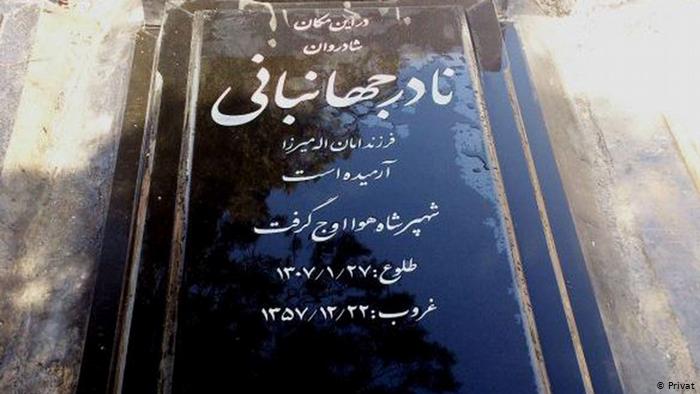 در این مکان
شادروان
نادر جهانبانی
فرزند امان اله میرزا
آرمیده است
شهپر شاه هوا اوج گرفت
طلوع: ۱۳۰۷/۱/۲۷
غروب: ۱۳۵۷/۱۲/۲۲
© Privat